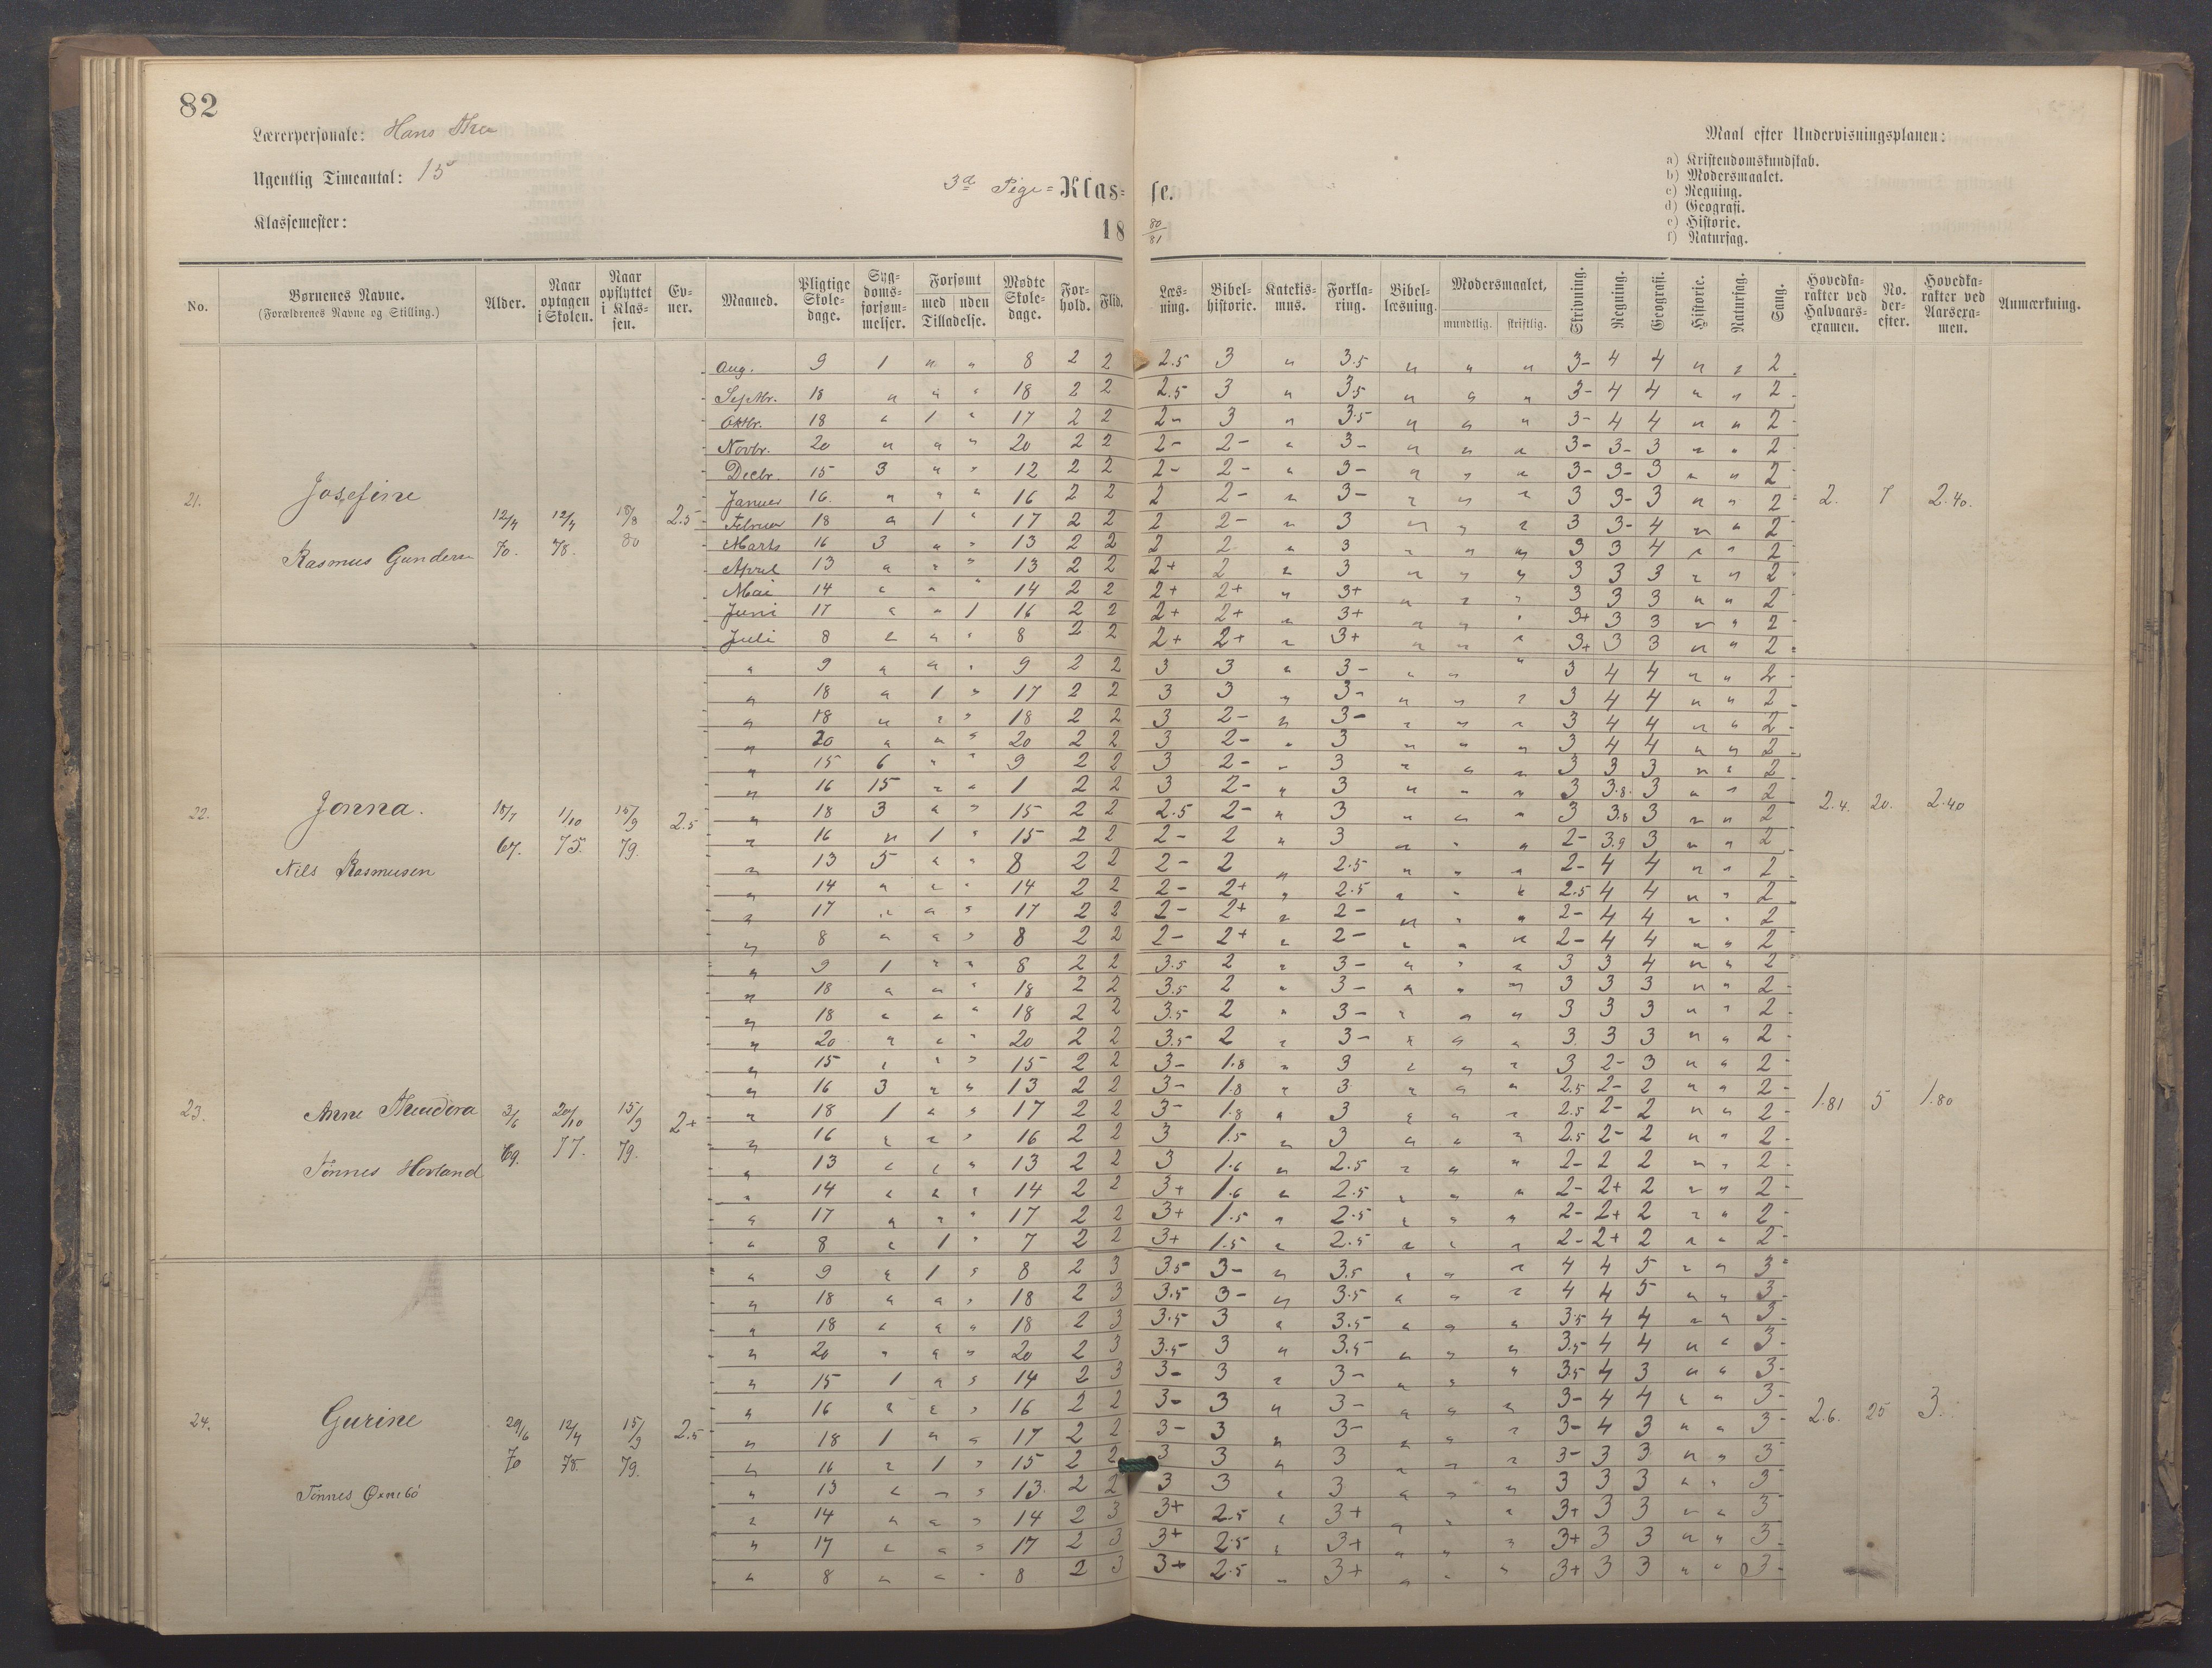 82
Lærerpersonale: Hans
Ugentlig Timeantal: 15
3d Pige-Klas- se.
Klassemester:
18 80/81
Maal efter Undervisningsplanen:
a) Kristendomskundskab.
b) Modersmaalet.
c) Regning.
d) Geografi.
e) Historie.
f) Naturfag.
No. Børnenes Navne. (Forældrenes Navne og Stilling.) Alder. Naar optagen i Skolen. Naar opflyttet i Klassen. Evner. Maaned. Pligtige Skoledage. Sygdomsforsømmelser. Forsømt med uden Tilladelse. Mødte Skoledage. Forhold. Flid. Læsning. Bibelhistorie. Katekismus. Forklaring. Bibellæsning. Modersmaalet, mundtlig. skriftlig. Skrivning. Regning. Geografi. Historie. Naturfag. Sang. Hovedkarakter ved Halvaarsexamen. No. derefter. Hovedkarakter ved Aarsexamen. Anmærkning.
21. Josefine Rasmus Gundersen 12/4 70. 12/4 78. 18/8 80 2.5 2. 7 2.40.
Aug. 9 1 " " 8 2 2 2.5 3 " 3.5 " " " 3- 4 4 " " 2
Septbr. 18 " " " 18 2 2 2.5 3 " 3.5 " " " 3- 4 4 " " 2
Oktbr. 18 " 1 " 17 2 2 2- 3 " 3.5 " " " 3- 4 4 " " 2
Novbr. 20 " " " 20 2 2 2- 2- " 3- " " " 3- 3- 3 " " 2
Decbr. 15 3 " " 12 2 2 2- 2- " 3- " " " 3- 3- 3 " " 2
Januar 16 " " " 16 2 2 2 2- " 3- " " " 3 3- 3 " " 2
Februar 18 " 1 " 17 2 2 2 2- " 3 " " " 3 3- 4 " " 2
Marts 16 3 " " 13 2 2 2 2 " 3 " " " 3 3 4 " " 2
April 13 " " " 13 2 2 2+ 2 " 3 " " " 3 3 3 " " 2
Mai 14 " " " 14 2 2 2+ 2+ " 3+ " " " 3 3 3 " " 2
Juni 17 " " 1 16 2 2 2+ 2+ " 3+ " " " 3+ 3 3 " " 2
Juli 8 " " " 8 2 2 2+ 2+ " 3+ " " " 3+ 3 3 " " 2
22. Jonna. Nils Rasmusen 67. 1/10 75. 15/9 79. 2.5 2.4. 20. 2.40
" 9 " " " 9 2 2 3 3 " 3- " " " 3 4 4 " " 2
" 18 " 1 " 17 2 2 3 3 " 3- " " " 3 4 4 " " 2
" 18 " " " 18 2 2 3 2- " 3- " " " 3 4 4 " " 2
" 20 " " " 20 2 2 3 2- " 3 " " " 3 4 4 " " 2
" 15 6 " " 9 2 2 3 2- " 3 " " " 3 3 3 " " 2
" 16 15 " " 1 2 2 3 2- " 3 " " " 3 3.8 3 " " 2
" 18 3 " " 15 2 2 2.5 2- " 3 " " " 3 3.8 3 " " 2
" 16 " 1 " 15 2 2 2- 2 " 3 " " " 2- 3.9 3 " " 2
" 13 5 " " 8 2 2 2- 2 " 2.5 " " " 2- 4 4 " " 2
" 14 " " " 14 2 2 2- 2+ " 2.5 " " " 2.5 4 4 " " 2
" 17 " " " 17 2 2 2- 2+ " 2- " " " 2- 4 4 " " 2
" 8 " " " 8 2 2 2- 2+ " 2- " " " 2- 4 4 " " 2
23. Anne Theodora Tønnes Hovland 3/6 69. 20/10 77. 15/9 79. 2+ 1.81 5 1.80
" 9 1 " " 8 2 2 3.5 2 " 3- " " " 3 3 4 " " 2
" 18 " " " 18 2 2 3.5 2 " 3- " " " 3 3 3 " " 2
" 18 " " " 18 2 2 3.5 2 " 3- " " " 3 3 3 " " 2
" 20 " " " 20 2 2 3.5 2 " 3- " " " 3 3 3 " " 2
" 15 " " " 15 2 2 3- 1.8 " 3 " " " 3 2- 3 " " 2
" 16 3 " " 13 2 2 3- 1.8 " 3 " " " 2.5 2- 2 " " 2
" 18 1 " " 17 2 2 3- 1.8 " 3 " " " 2.5 2- 2 " " 2
" 16 " " " 16 2 2 3 1.5 " 3 " " " 2.5 2- 2 " " 2
" 13 " " " 13 2 2 3 1.6 " 2.5 " " " 2- 2 2 " " 2
" 14 " " " 14 2 2 3+ 1.6 " 2.5 " " " 2- 2+ 2 " " 2
" 17 " " " 17 2 2 3+ 1.5 " 2.5 " " " 2- 2+ 2 " " 2
" 8 " 1 " 7 2 2 3+ 1.5 " 2.5 " " " 2- 2+ 2 " " 2
24. Gurine Tønnes Øxnebö 29/6 70 12/4 78. 15/9 79. 2.5 2.6. 25 3.
" 9 " 1 " 8 2 3 3.5 3- " 3.5 " " " 4 4 5 " " 3
" 18 " " " 18 2 3 3.5 3- " 3.5 " " " 4 4 5 " " 3
" 18 " " " 18 2 3 3.5 3 " 3.5 " " " 3.5 4 4 " " 3
" 20 " " " 20 2 3 3.5 3 " 3.5 " " " 3.5 4 4 " " 3
" 15 1 " " 14 2 3 3- 3 " 3- " " " 3.5 4 3 " " 3
" 16 " " " 16 2 2 3- 3 " 3- " " " 3- 4 4 " " 3
" 18 1 " " 17 2 2 3- 3 " 3- " " " 3- 4 3 " " 3
" 16 " 1 " 15 2 2 3 3 " 3 " " " 3- 3 3 " " 3
" 13 " " " 13. 2 2 3 3 " 3 " " " 3 3 3 " " 3
" 14 " " " 14 2 3 3+ 2.5 " 3+ " " " 3+ 3 3 " " 3
" 17 " " " 17 2 3 3+ 2.5 " 3+ " " " 3+ 3 3 " " 3
" 8 " " " 8 2 3 3+ 2.5 " 3+ " " " 3+ 3 3 " " 3